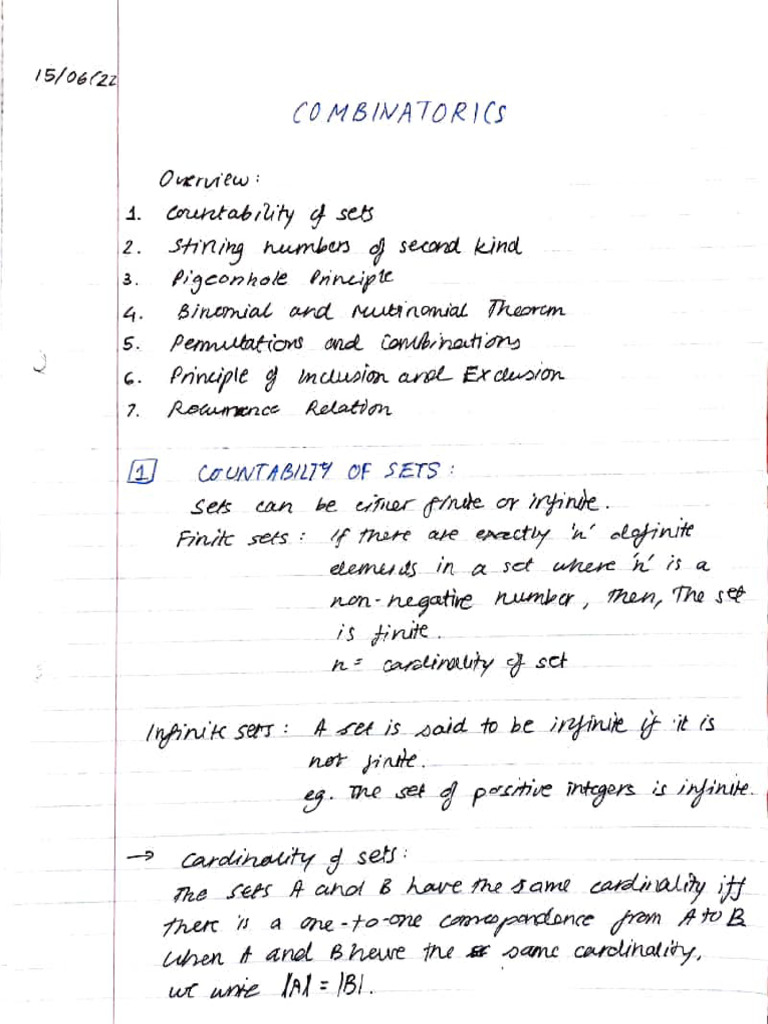 15/06/22
COMBINATORICS
Overview:
1. Countability of sets
2. Stirling numbers of second kind
3. Pigeonhole Principle
4. Binomial and Multinomial Theorem
5. Permutations and Combinations
6. Principle of Inclusion and Exclusion
7. Recurrence Relation
1 COUNTABILTY OF SETS:
Sets can be either finite or infinite.
Finite sets: If there are exactly 'n' definite
elements in a set where 'n' is a
non-negative number, then, The set
is finite.
n = cardinality of set
Infinite sets: A set is said to be infinite if it is
not finite.
eg. The set of positive integers is infinite.
→ Cardinality of sets:
The sets A and B have the same cardinality iff
there is a one-to-one correspondence from A to B
When A and B have the same cardinality,
we write |A| = |B|.